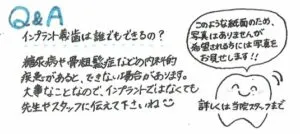 Q&A
インプラント義歯は誰でもできるの？
糖尿病や骨粗鬆症などの内科的
疾患があると、できない場合があります。
大事なことなので、インプラントではなくても
先生やスタッフに伝えて下さいね
このような紙面のため、
写真はありませんが
希望される方には写真を
お見せします!!
詳しくは当院スタッフまで